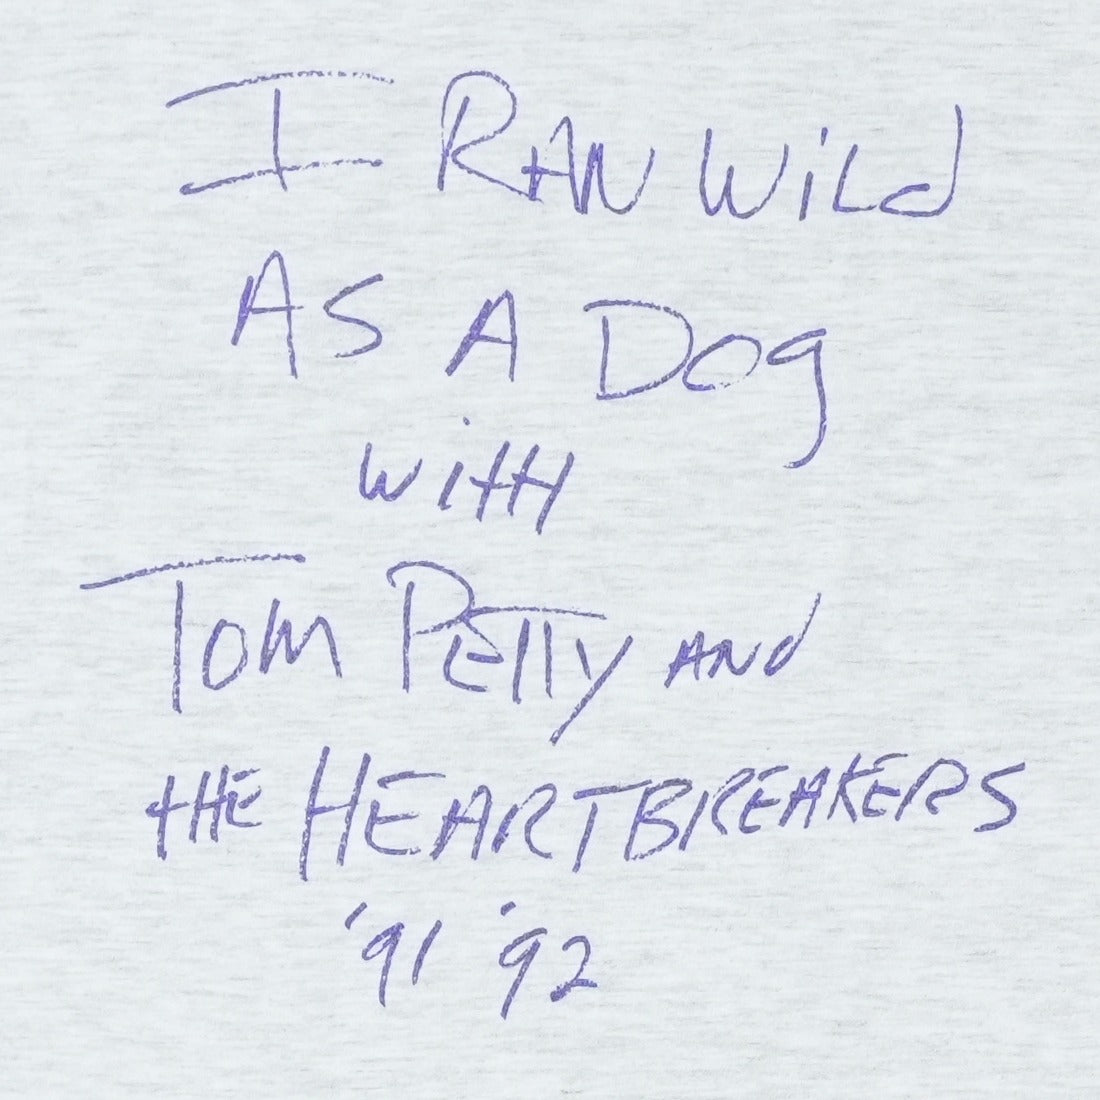 I RAN WiLd
AS A Dog
with
Tom PETTY ANd
tHE HEARTBREAKERS
'91 '92